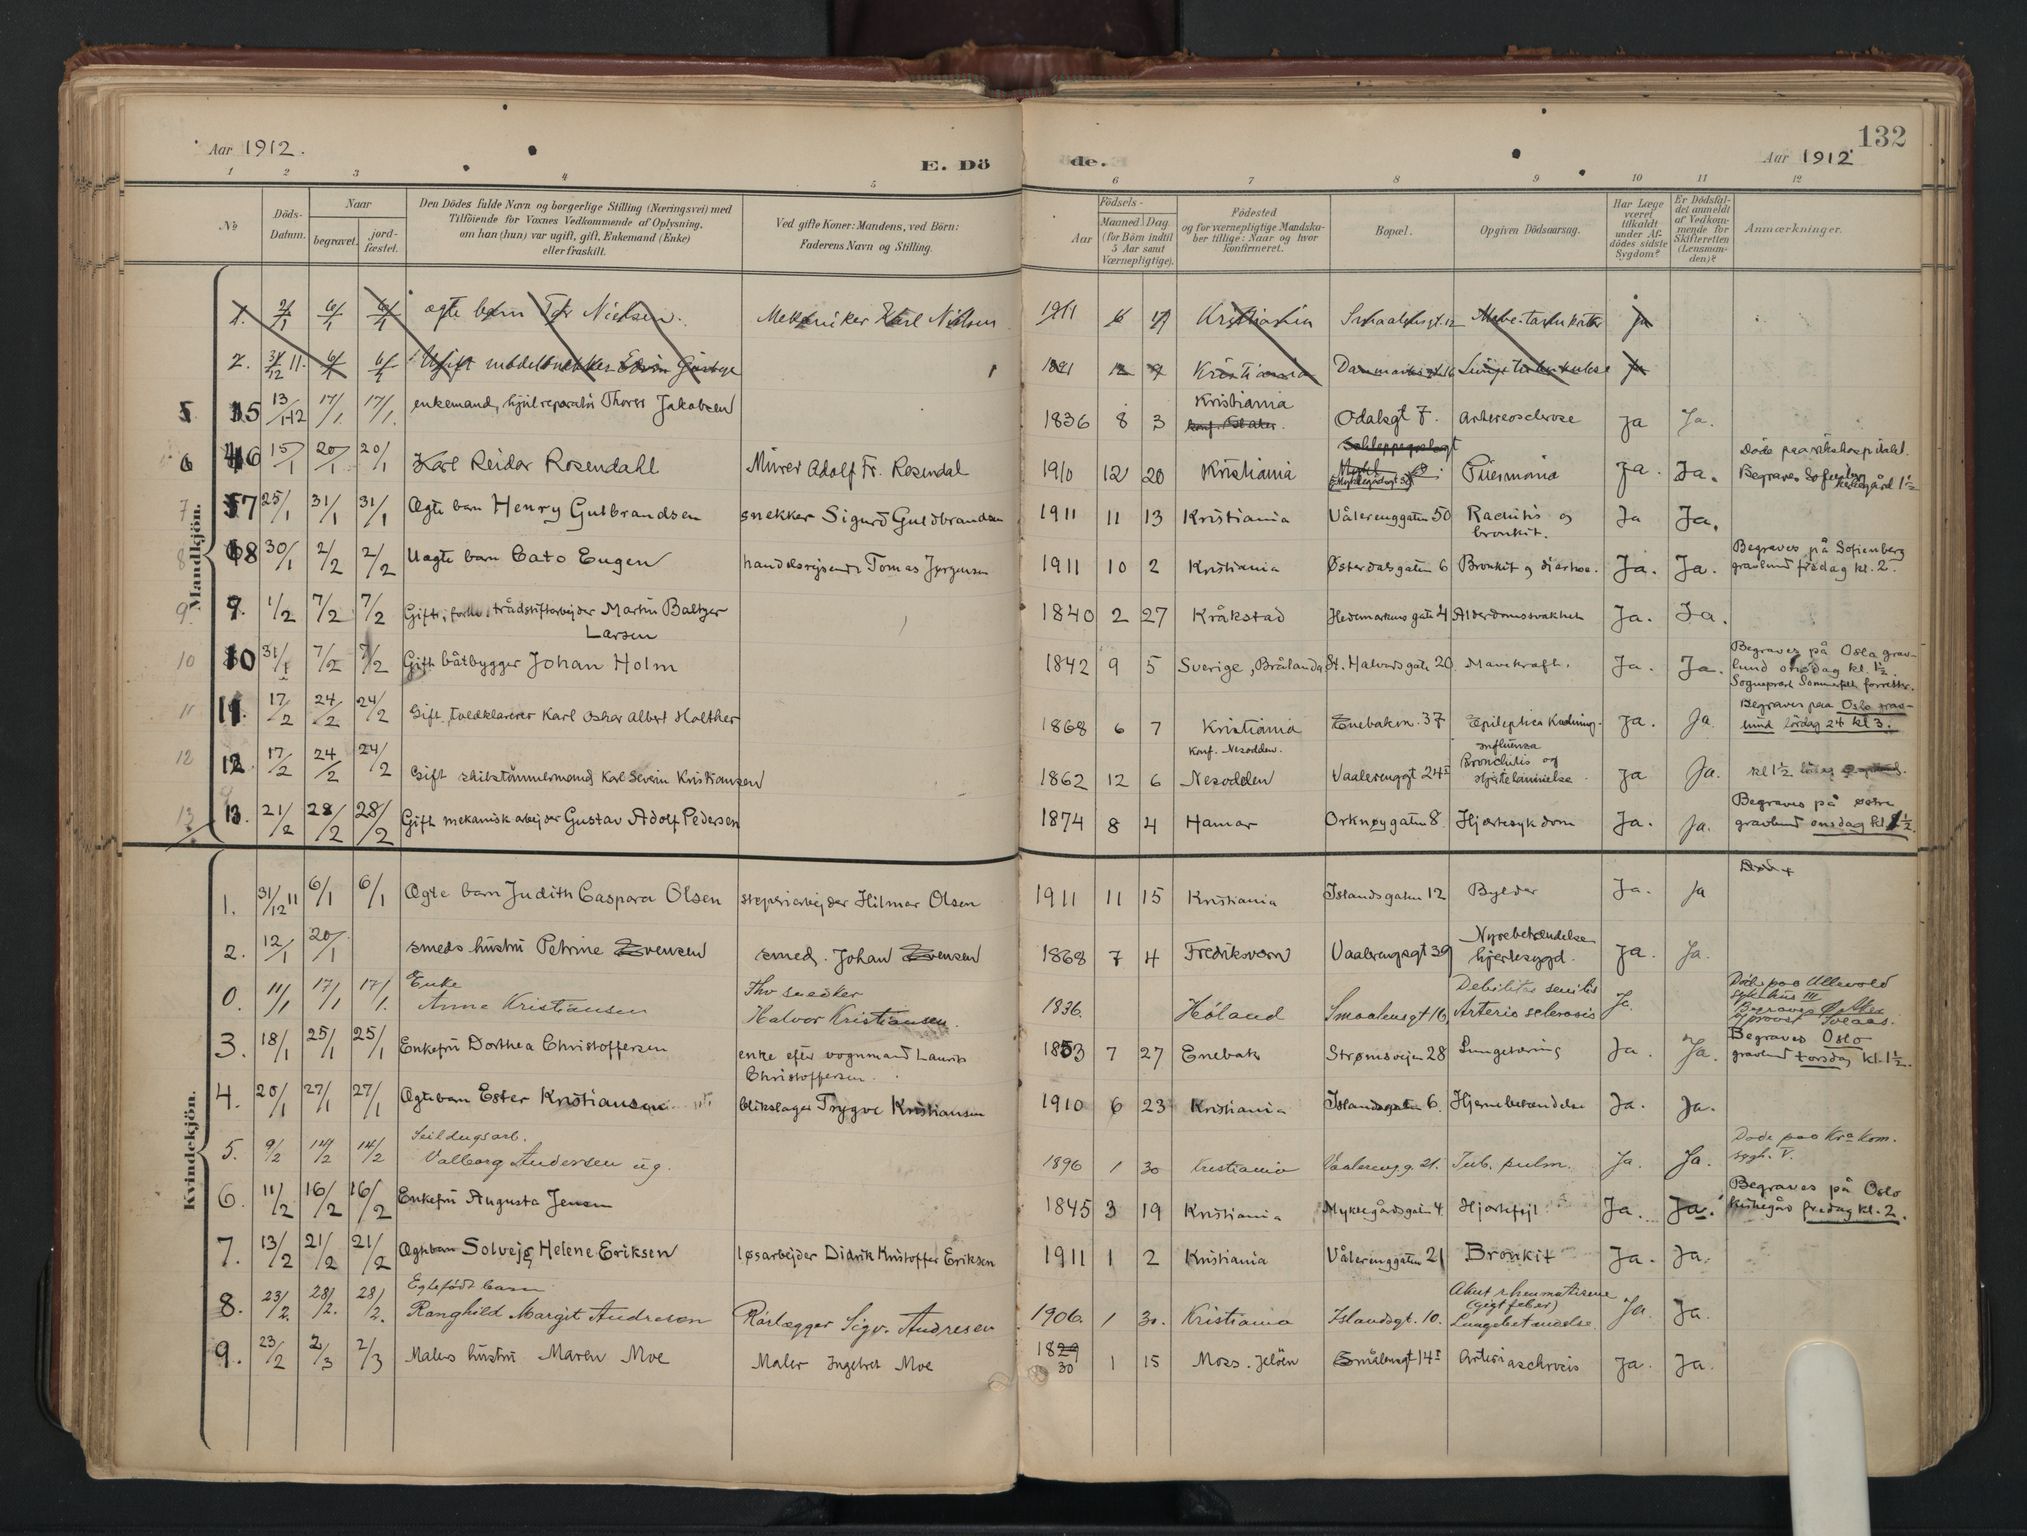 Aar 1912.
E. Dö
de.
132
Aar 1912
1 2 3 4 5 6 7 8 9 10 11 12
№
Döds-Datum.
Naar
begravet.
jord-fæstet.
Den Dödes fulde Navn og borgerlige Stilling (Næringsvei) med
Tilföiende for Voxnes Vedkommende af Oplysning,
om han (hun) var ugift, gift, Enkemand (Enke)
eller fraskilt.
Ved gifte Koner: Mandens, ved Börn:
Faderens Navn og Stilling.
Födsels-
Aar
Maaned. Dag.
(for Börn indtil
5 Aar samt
Værnepligtige).
Födested
og for værnepligtige Mandska-
ber tillige: Naar og hvor
konfirmeret.
Bopæl.
Opgiven Dödsaarsag.
Har Læge
været
tilkaldt
under Af-
dödes sidste
Sygdom?
Er Dödsfal-
det anmeldt
af Vedkom-
mende for
Skifteretten
(Lensman-
den)?
Anmærkninger.
Mandkjön.
1. 2/1 6/1 6/1 ægte barn Nielsen. Mekaniker Karl Nielsen 1911 6 Kristiania Smaalensgt. 12 Ja
2. 31/12 11. 6/1 6/1 Ugift modelsnekker Edvin 12 Kristiania Danmarksgt 16 Ja
5 13/1 12 17/1 17/1. enkemand, hjulreparatör Thorer Jakobsen 1836 8 3 Kristiania Odalsgt 7. Artereosclerose Ja Ja.
konf.
6 15/1 20/1 20/1 Karl Reidar Rosendahl Mürer Adolf Fr. Rosendal 1910 12 20 Kristiania Schleppegrelsgt Pnevmonia Ja. Ja. Döde paa rikshospitalet.
Begraves Sofienberg kirkegård 1½
7 25/1 31/1 31/1 Ægte barn Henry Gulbrandsen snekker Sigurd Guldbrandsen 1911 11 13 Kristiania Vålerenggaten 50 Rachitis og bronkit. Ja Ja.
8 30/1 2/2 2/2 Uægte barn Cato Eugen handelsrejsende Tomas Jørgensen 1911 10 2 Kristiania Østerdalsgaten 6 Bronkit og diarhoe. Ja. Ja. Begraves på Sofienberg
gravlund fredag kl. 2.
9. 1/2 7/2 7/2 Gift, forh. trådstiftarbejder Martin Baltzer
Larsen 1840 2 27 Kråkstad Hedemarkens gate 4 Alderdomssvakhet Ja. Ja.
10 31/1 7/2 7/2 Gift båtbygger Johan Holm 1842 9 5 Sverige, Brålanda St. Halvardsgate 20. Mavekræft. Ja. Ja. Begraves på Oslo grav-
lund onsdag kl. 1½
Sogneprest Sommerfelt forretter.
11. 17/2 24/2 24/2 Gift toldklarerer Karl Oskar Albert Holther 1868 6 7 Kristiania Enebakvn. 37 Epileptica Ja. Ja. Begraves paa Oslo grav-
lund lördag 24 kl 3.
12 17/2 24/2 24/2 Gift skibstömmermand Karl Severin Kristiansen 1862 12 6 konf. Nesodden. Nesodden Vaalerenggt 24 I Influenza
Bronchitis og
Hjertelammelse Ja Ja. kl 1½
13. 21/2 28/2 28/2 Gift mekanisk arbejder Gustav Adolf Pedersen 1874 8 4 Hamar Orknøygaten 8. Hjærtesykdom Ja. Ja. Begraves på østre
gravlund onsdag kl 1½.
Kvindekjön.
1. 31/12 11 6/1 6/1 Ægte barn Judith Caspara Olsen støperiarbejder Hilmar Olsen 1911 11 15 Kristiania Islandsgaten 12 Bylder Ja. Ja
2. 12/1 20/1 smeds hüstrü Petrine Evensen smed. Johan Evensen 1868 7 4 Fredriksværn Vaalerenggt 39 Nyrebetændelse
hjertesygd. Ja. Ja.
0. 11/1 17/1 17/1. Enke
Anne Kristiansen Fhv snedker
Halvor Kristiansen. 1836. Höland Smaalensgt 16, Debilitas senilis
Arterio sclerosis Ja. Döde paa Ullevold
sykehus III
Begraves Ø. Aker
3. 18/1 25/1 25/1 Enkefrü Dorthea Christoffersen enke efter vognmand Laurits
Christoffersen. 1853 7 27 Enebak Strømsvejen 28 Lungetæring Ja. Ja. Begraves Oslo
gravlund torsdag kl. 1½.
4. 20/1 27/1 27/1 Ægte barn Ester Kristiansen blikslager Trygve Kristiansen 1910 6 23 Kristiania Islandsgaten 6. Hjernebetændelse Ja. Ja.
5. 9/2 14/2 14/2 Seildugsarb.
Valborg Andersen ug. 1896 1 30 Kristiania Vaalereng g. 21. Tub. pulm. Ja. Ja. Döde paa Kra kom.
sygh. V.
6. 11/2 16/2 16/2 Enkefrü Augusta Jensen 1845 3 19 Kristiania Myklegårdsgaten 4. Hjærtefejl Ja. Ja. Begraves på Oslo
kirkegård fredag kl. 2.
7. 13/2 21/2 21/2 Ægte barn Solvejg Helene Eriksen løsarbejder Didrik Kristoffer Eriksen 1911 1 2 Kristiania Vålerenggaten 21 Bronkit Ja. Ja.
8. 23/2. 28/2. 28/2. Egtefödt barn
Ranghild Margit Andresen Rörlægger Sigv. Andresen 1906. 1 30. Kristiania Islandsgt. 10. Akut rheumatisme
(gigtfeber)
Lungebetændelse. Ja. Ja.
9. 23/2 2/3 2/3 Malers hüstrü Maren Moe Maler Ingebret Moe 1829
30 1 15 Moss. Jelöen Smålensgt 14 I Ja. Ja.